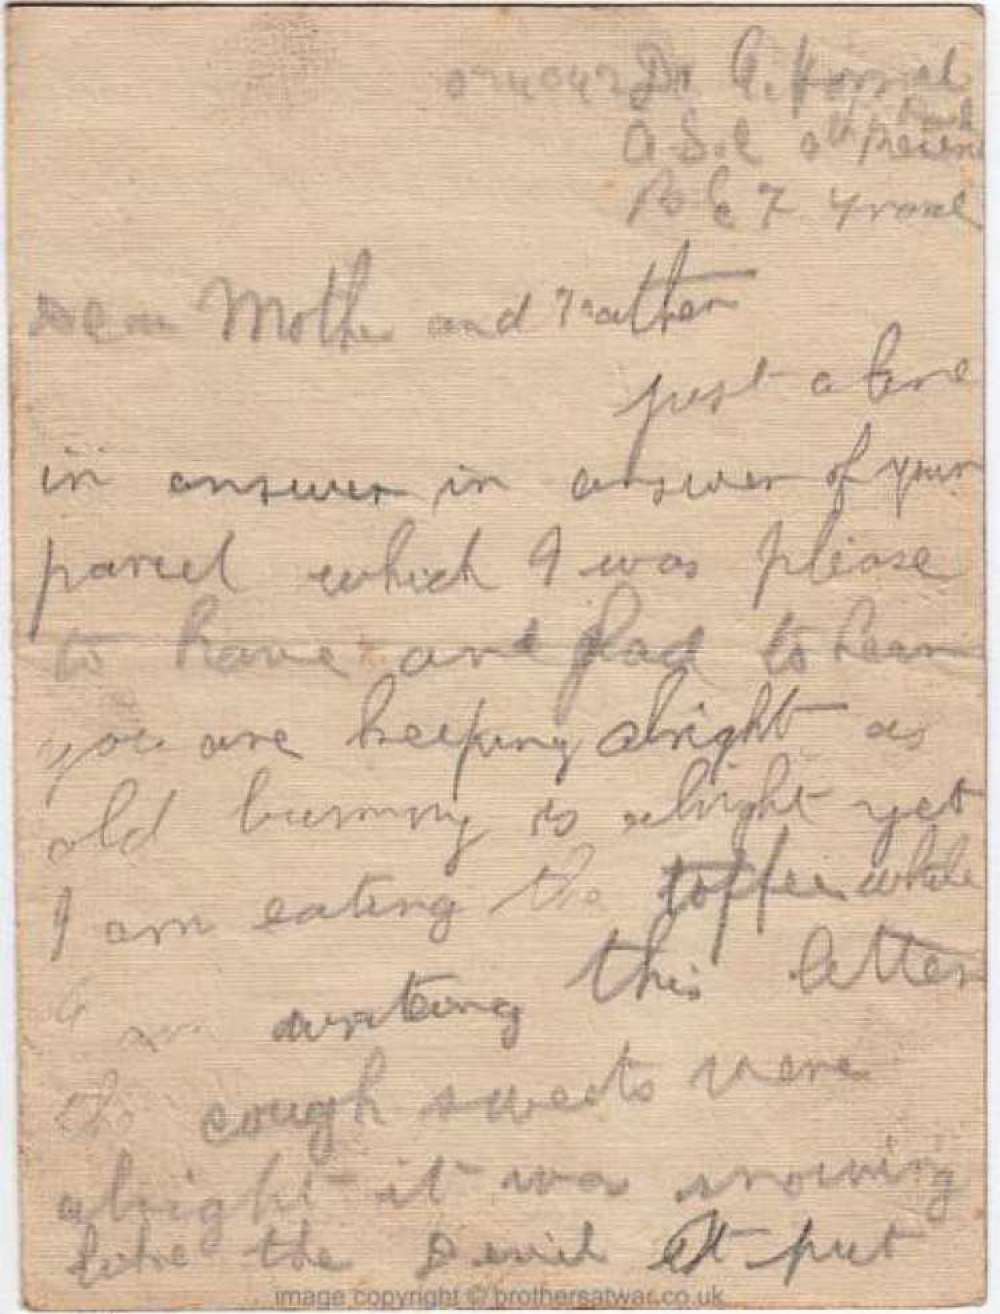 Dr A.
A.S.C
B E F France
Dear Mother and Father
just a line
in answer in answer of your
parcel which I was please
to have and glad to hear
you are keeping alright as
old bunny is alright yet
I am eating the toffee while
I am writing this letter
the cough sweets were
alright it was snowing
like the Devil it put
image copyright © brothersatwar.co.uk